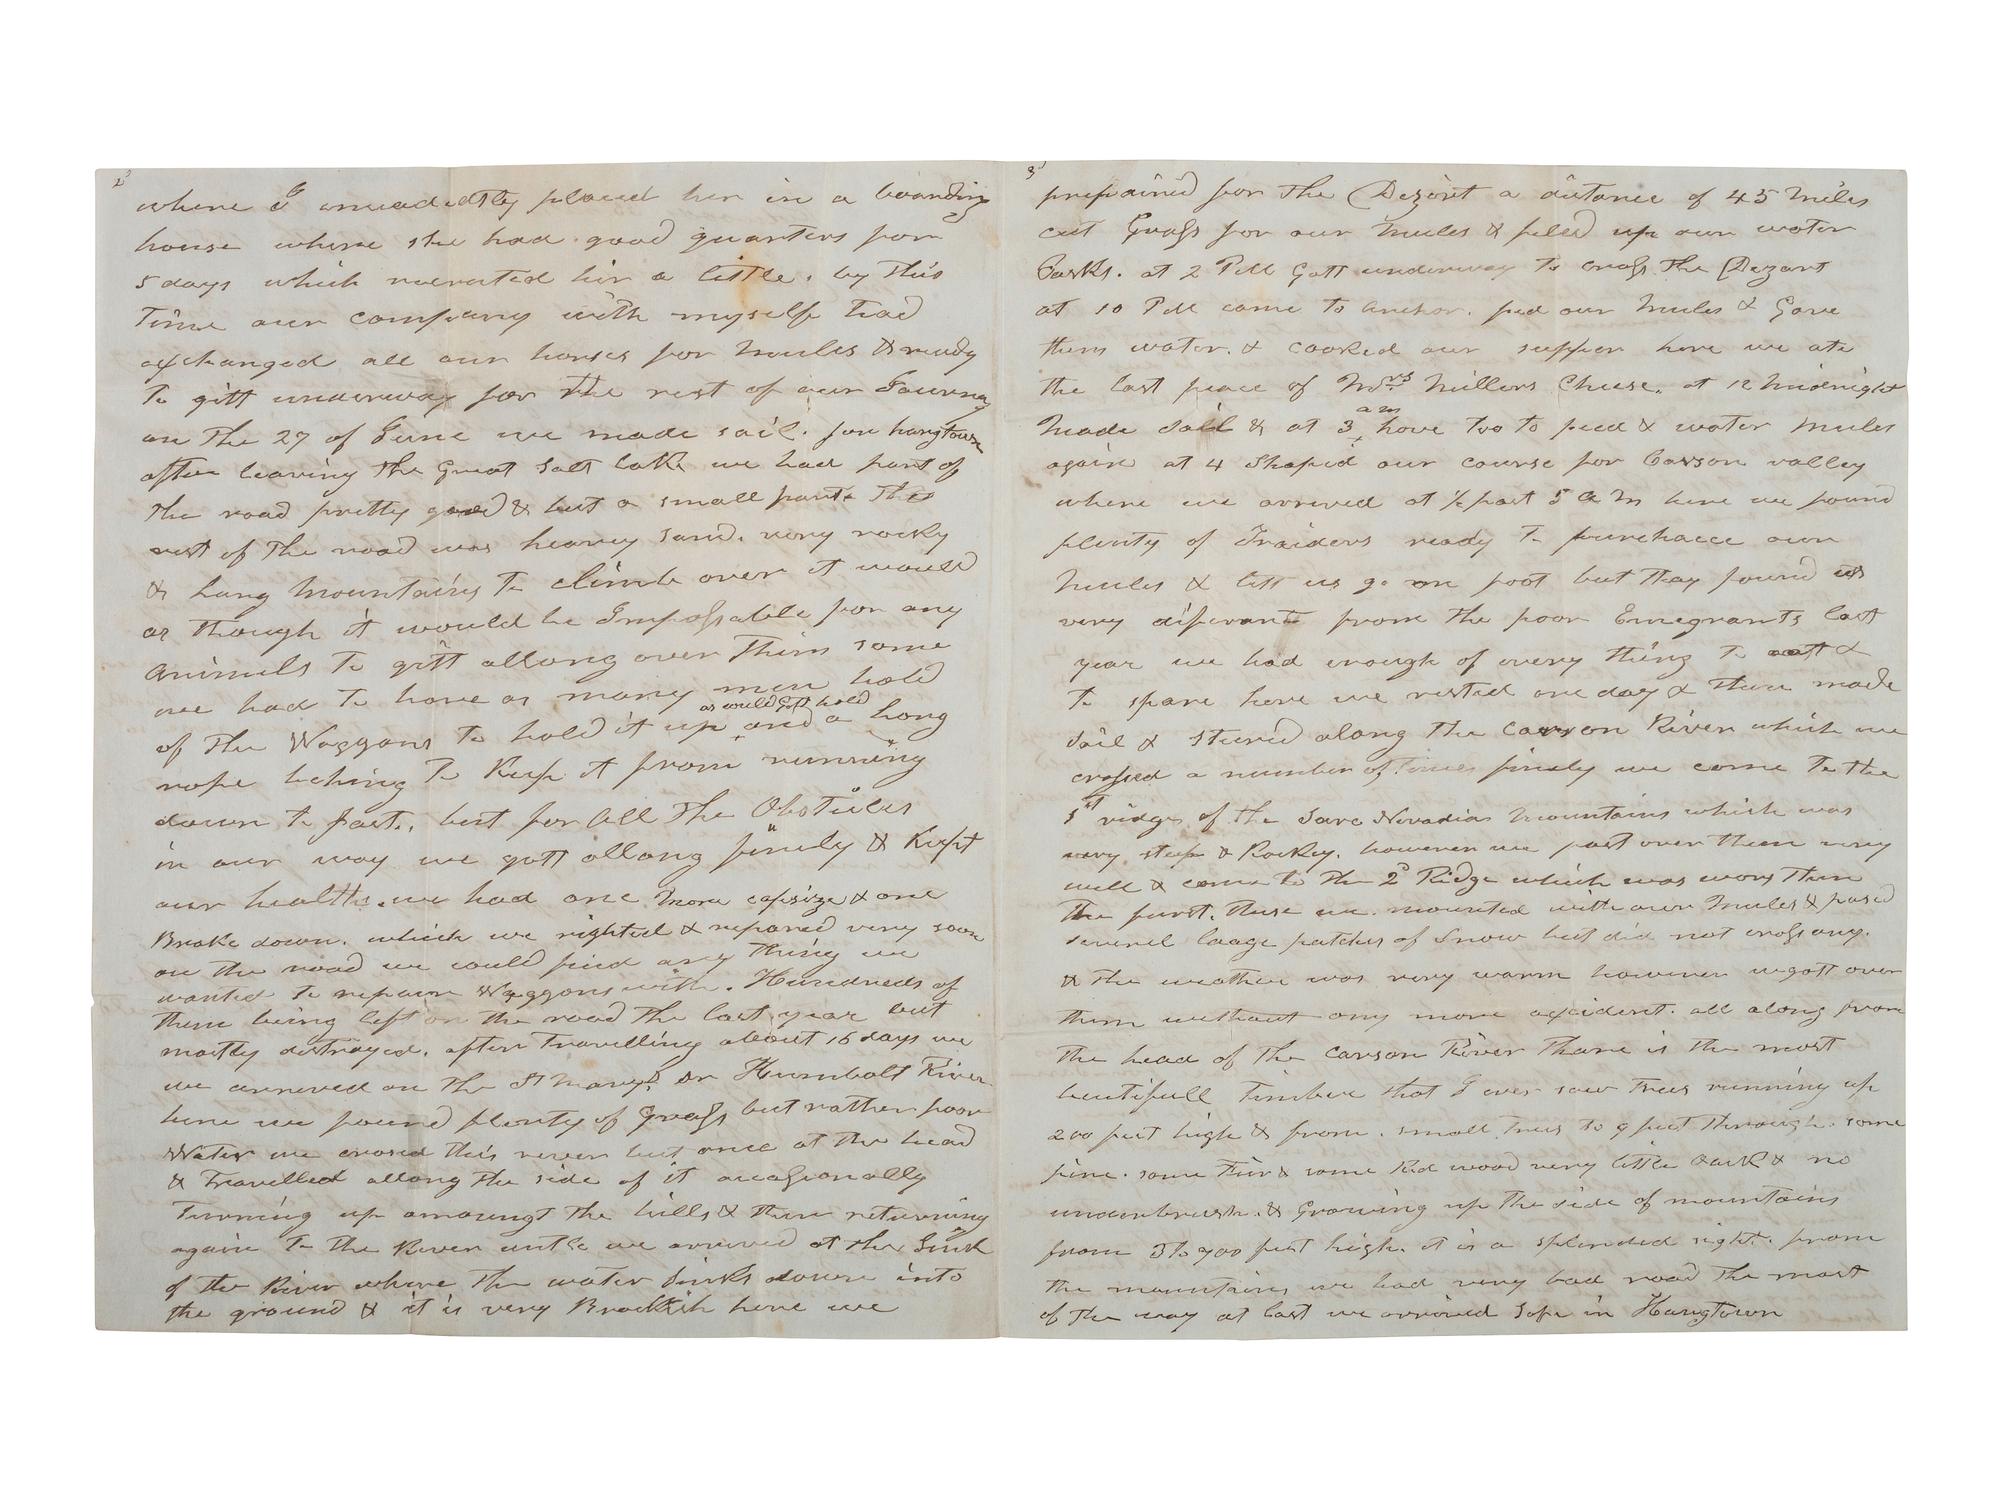 2d
where I imeadedtly placed her in a boarding
house where she had good quarters for
5 days which recruted hir a little. by this
Time our company with myself had
exchanged all our horses for Mules & ready
To gitt underway for the rest of our Journey
on The 27 of June we made sail. for hangtown
after leaving the Great Salt Lake we had part of
the road pretty good & but a small part The
rest of The road was heavey sand. very rocky
& Long Mountains To climb over it would
as though it would be Impossable for any
animels To gitt allong over Them some
we had To have as many men hold
as could gett hold
of The Waggons To hold it up and a long
rope behing To Keep it from running
down to fast., but for all The Obsticles
in our way we gott allong finely & Kept
our health. we had one more capsize & one
Brake down. which we righted & repared very soon
on the road we could find any Thing we
wanted To repair Waggons with. Hundreds of
them being left on the road The last year but
mostly distrayed. after Travelling about 16 days we
we arreved on the St Marys or Humbolt River
here we found plenty of Grass but rather poor
Water we crosed this rever but once at the head
& Travelled allong The side of it occasionally
Turning up amoungt the hills & then returning
again To the River untle we arrived at the Sink
of the River where The water Sinks down into
the ground & it is very Brackish here we
3d
prepaired for The Dezert a distance of 45 Miles
cut Grass for our Mules & filed up our water
Casks. at 2 PM Gott underway to cross The Dezart
at 10 PM came To anchor. fed our Mules & Gave
them water. & cooked our supper here we ate
the last peace of Mrs Millers Cheese. at 12 Midnight
am
Made Sail & at 3 hove Too to feed & water Mules
again at 4 Shaped our course for Carson valley
where we arreved at ½ past 5 a m here we found
plenty of Traiders ready To purchace our
Mules & lett us go on foot but They found us
very diferant from the poor Emegrants last
year we had enough of every thing To eat &
To spare here we rested one day & then made
Sail & Steered along the Carson River which we
crossed a number of times finely we come To the
1st ridge of the Sare Nevadias Mountains which was
very steep & Rockey. however we past over them very
well & come to The 2d Ridge which was wors Then
The furst. these we mounted with our Mules & pased
several large patches of Snow but did not cross any.
& the weather was very warm however we gott over
them without any more axident. all along from
the head of The Carson River Thare is the most
beutifull Timber that I ever saw trees running up
200 feet high & from. small trees to 9 feet Through. some
pine. some Fur & some Red wood very little Oark & no
underbrush. & Growing up The side of mountains
from 5 to 900 feet high. it is a splended sight. from
the mountains we had very bad road The most
of The way at last we arrived safe in Hangtown